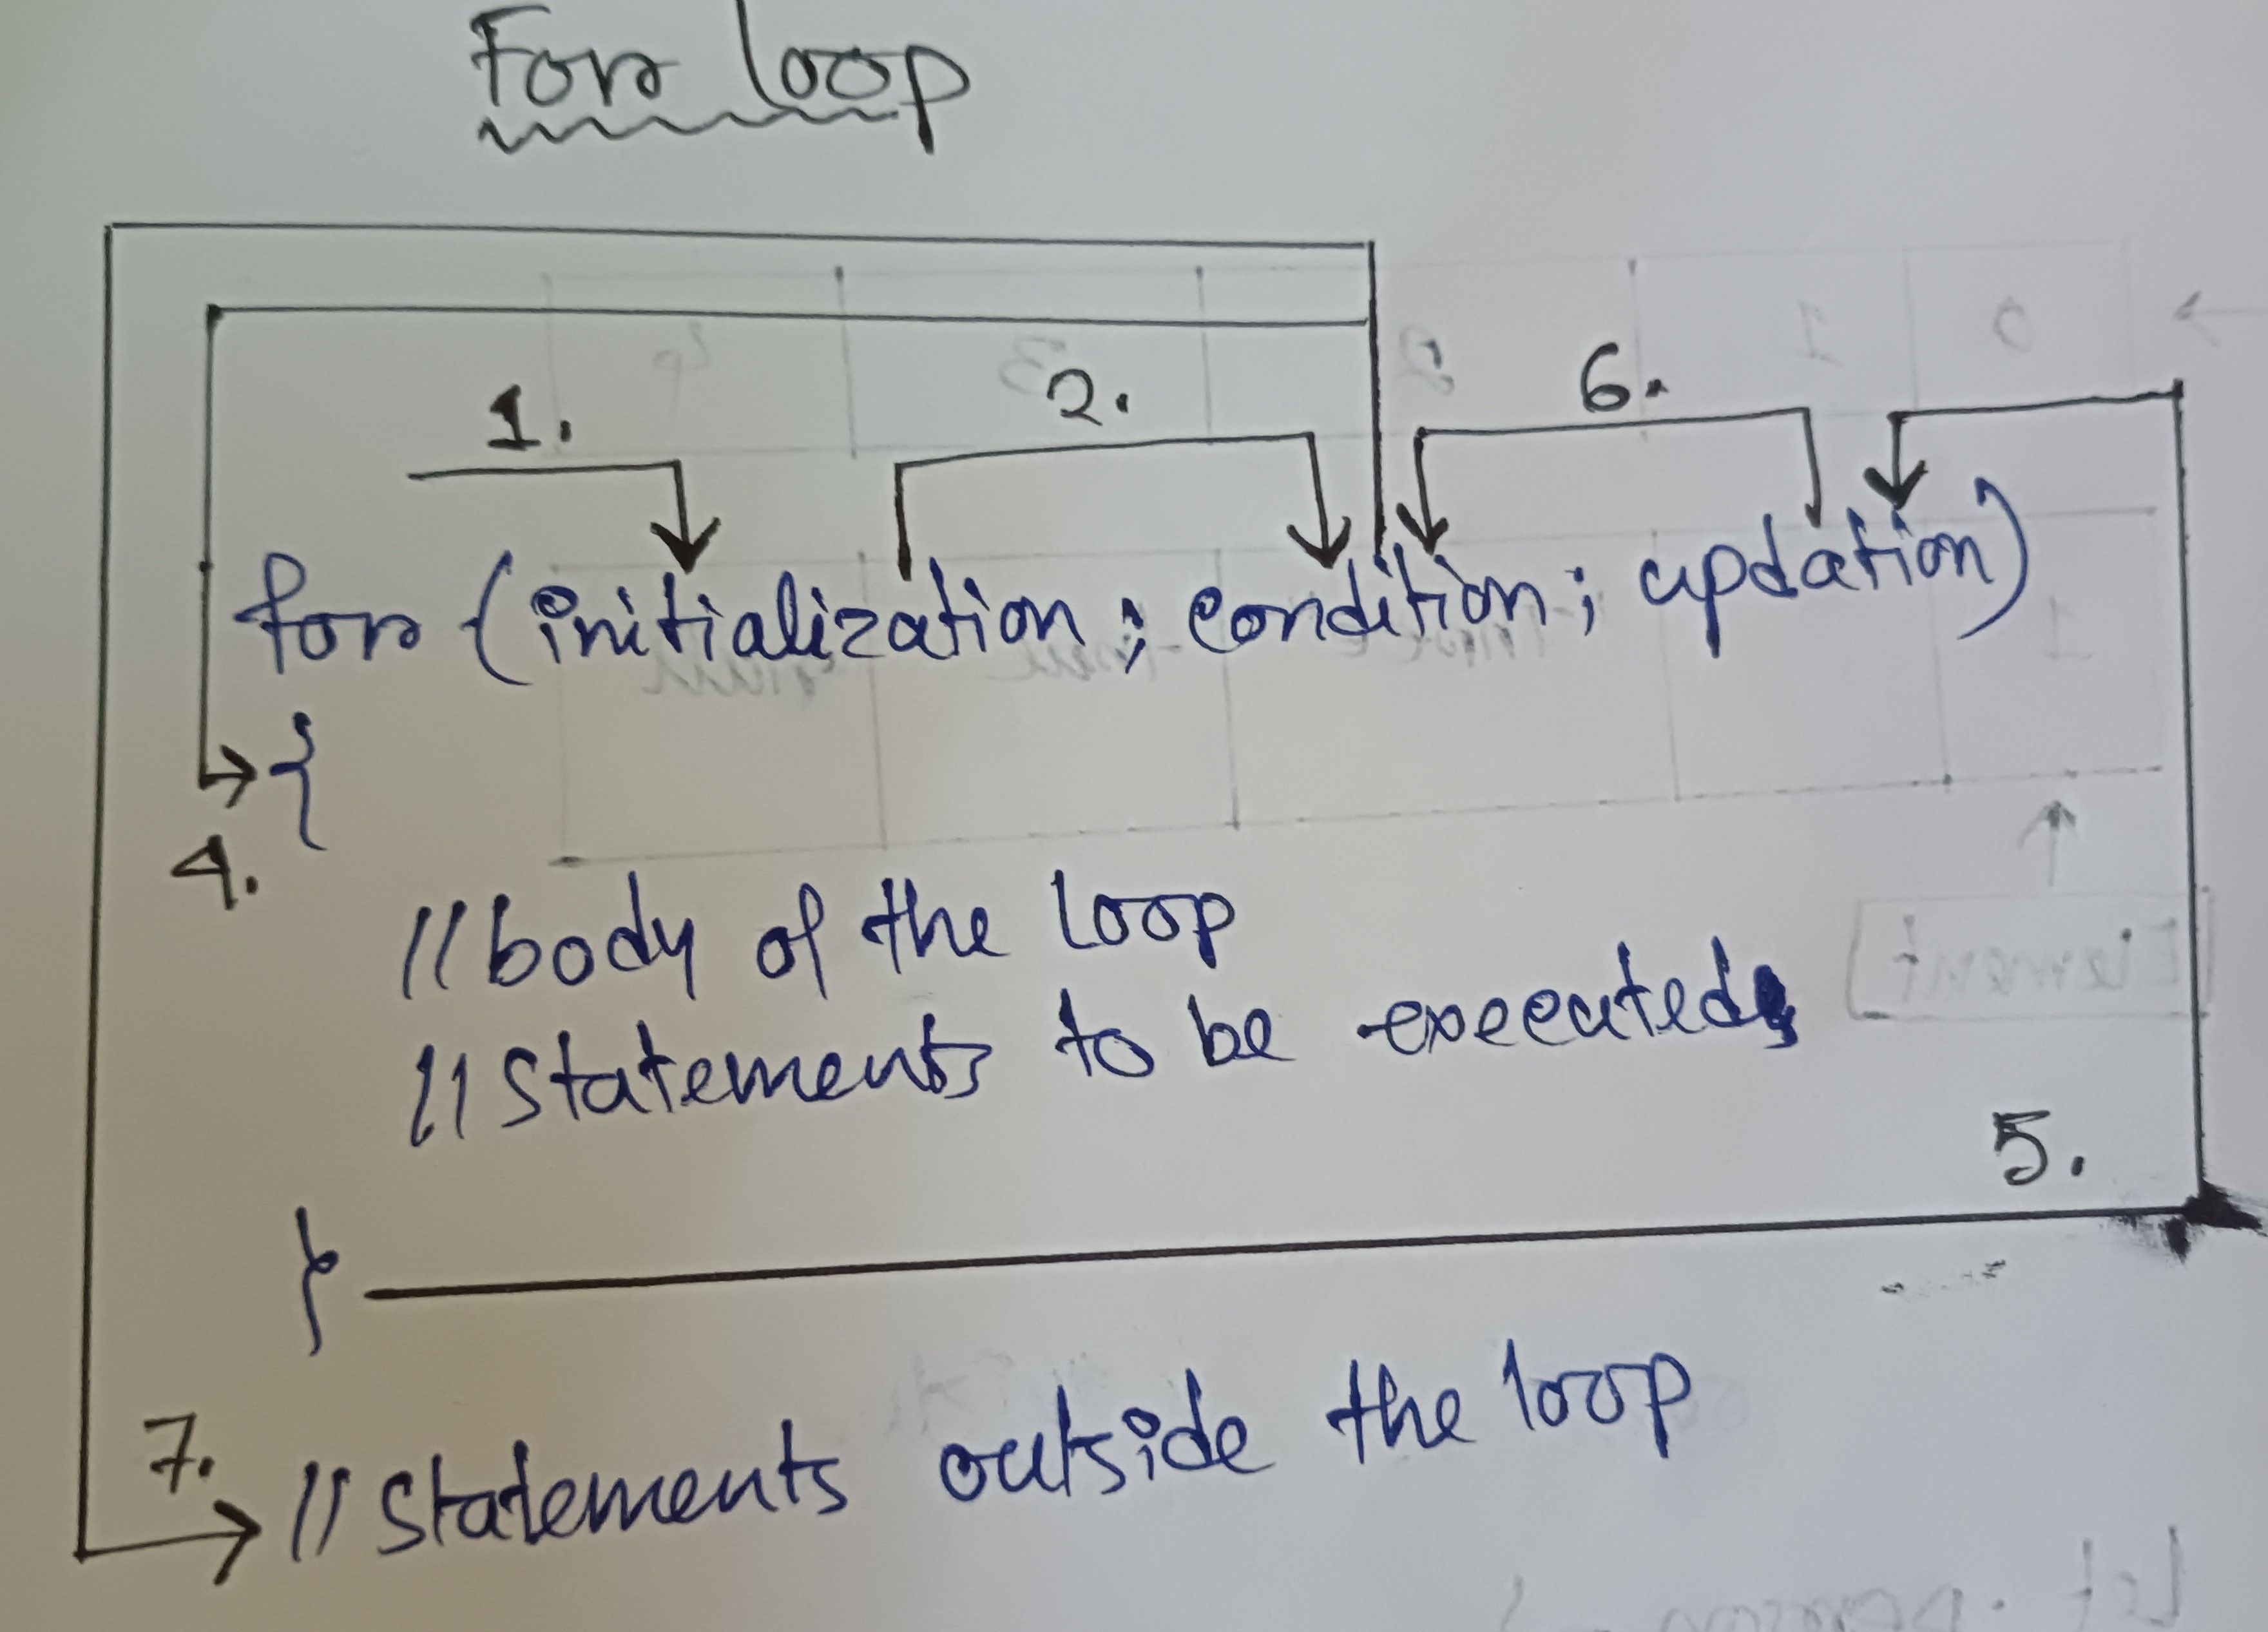 For loop
1. 2. 6.
for (initialization; condition; updation)
{
4.
//body of the loop
//statements to be executed;
5.
}
7.
//statements outside the loop